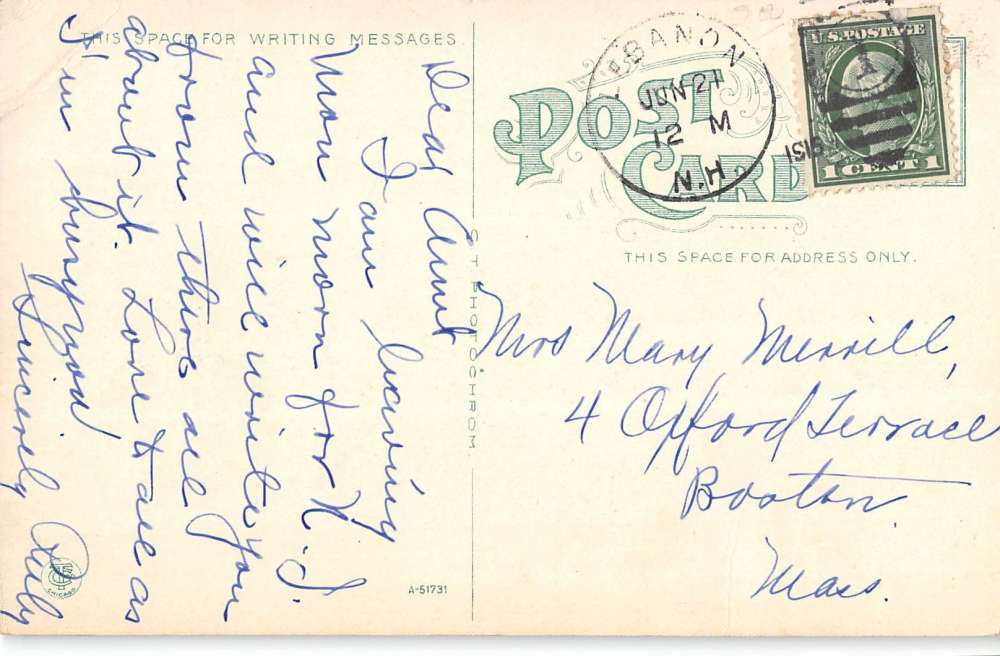 THIS SPACE FOR WRITING MESSAGES.
Dear Aunt
I am leaving
Mon morn for N. J.
and will write you
from there all
about it. Love to all as
I'm hurryied
Sincerely Ruby
C. T. PHOTOCHROM
A-51731
CHICAGO
POST CARD
LEBANON
JUN 21
12 M
1915
N.H.
U.S. POSTAGE
1 CENT 1
THIS SPACE FOR ADDRESS ONLY.
Mrs Mary Merrill,
4 Offord Terrace
Boston,
Mass.